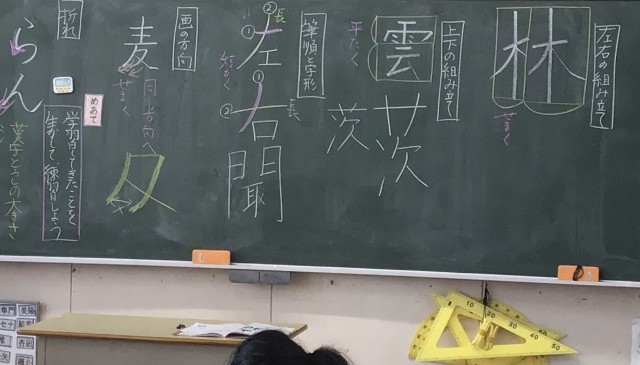 左右の組み立て
林
せまく
上下の組み立て
雲
平たく
茨
茨
筆順と字形
② 長
① 左
短かく
①
② 右
長
聞
画の方向
麦
せまく
同じ方向へ
夂
めあて
学習してきたことを
生かして、練習しよう
折れ
らん
漢字とかなの大きさ
10
20
30
40
50